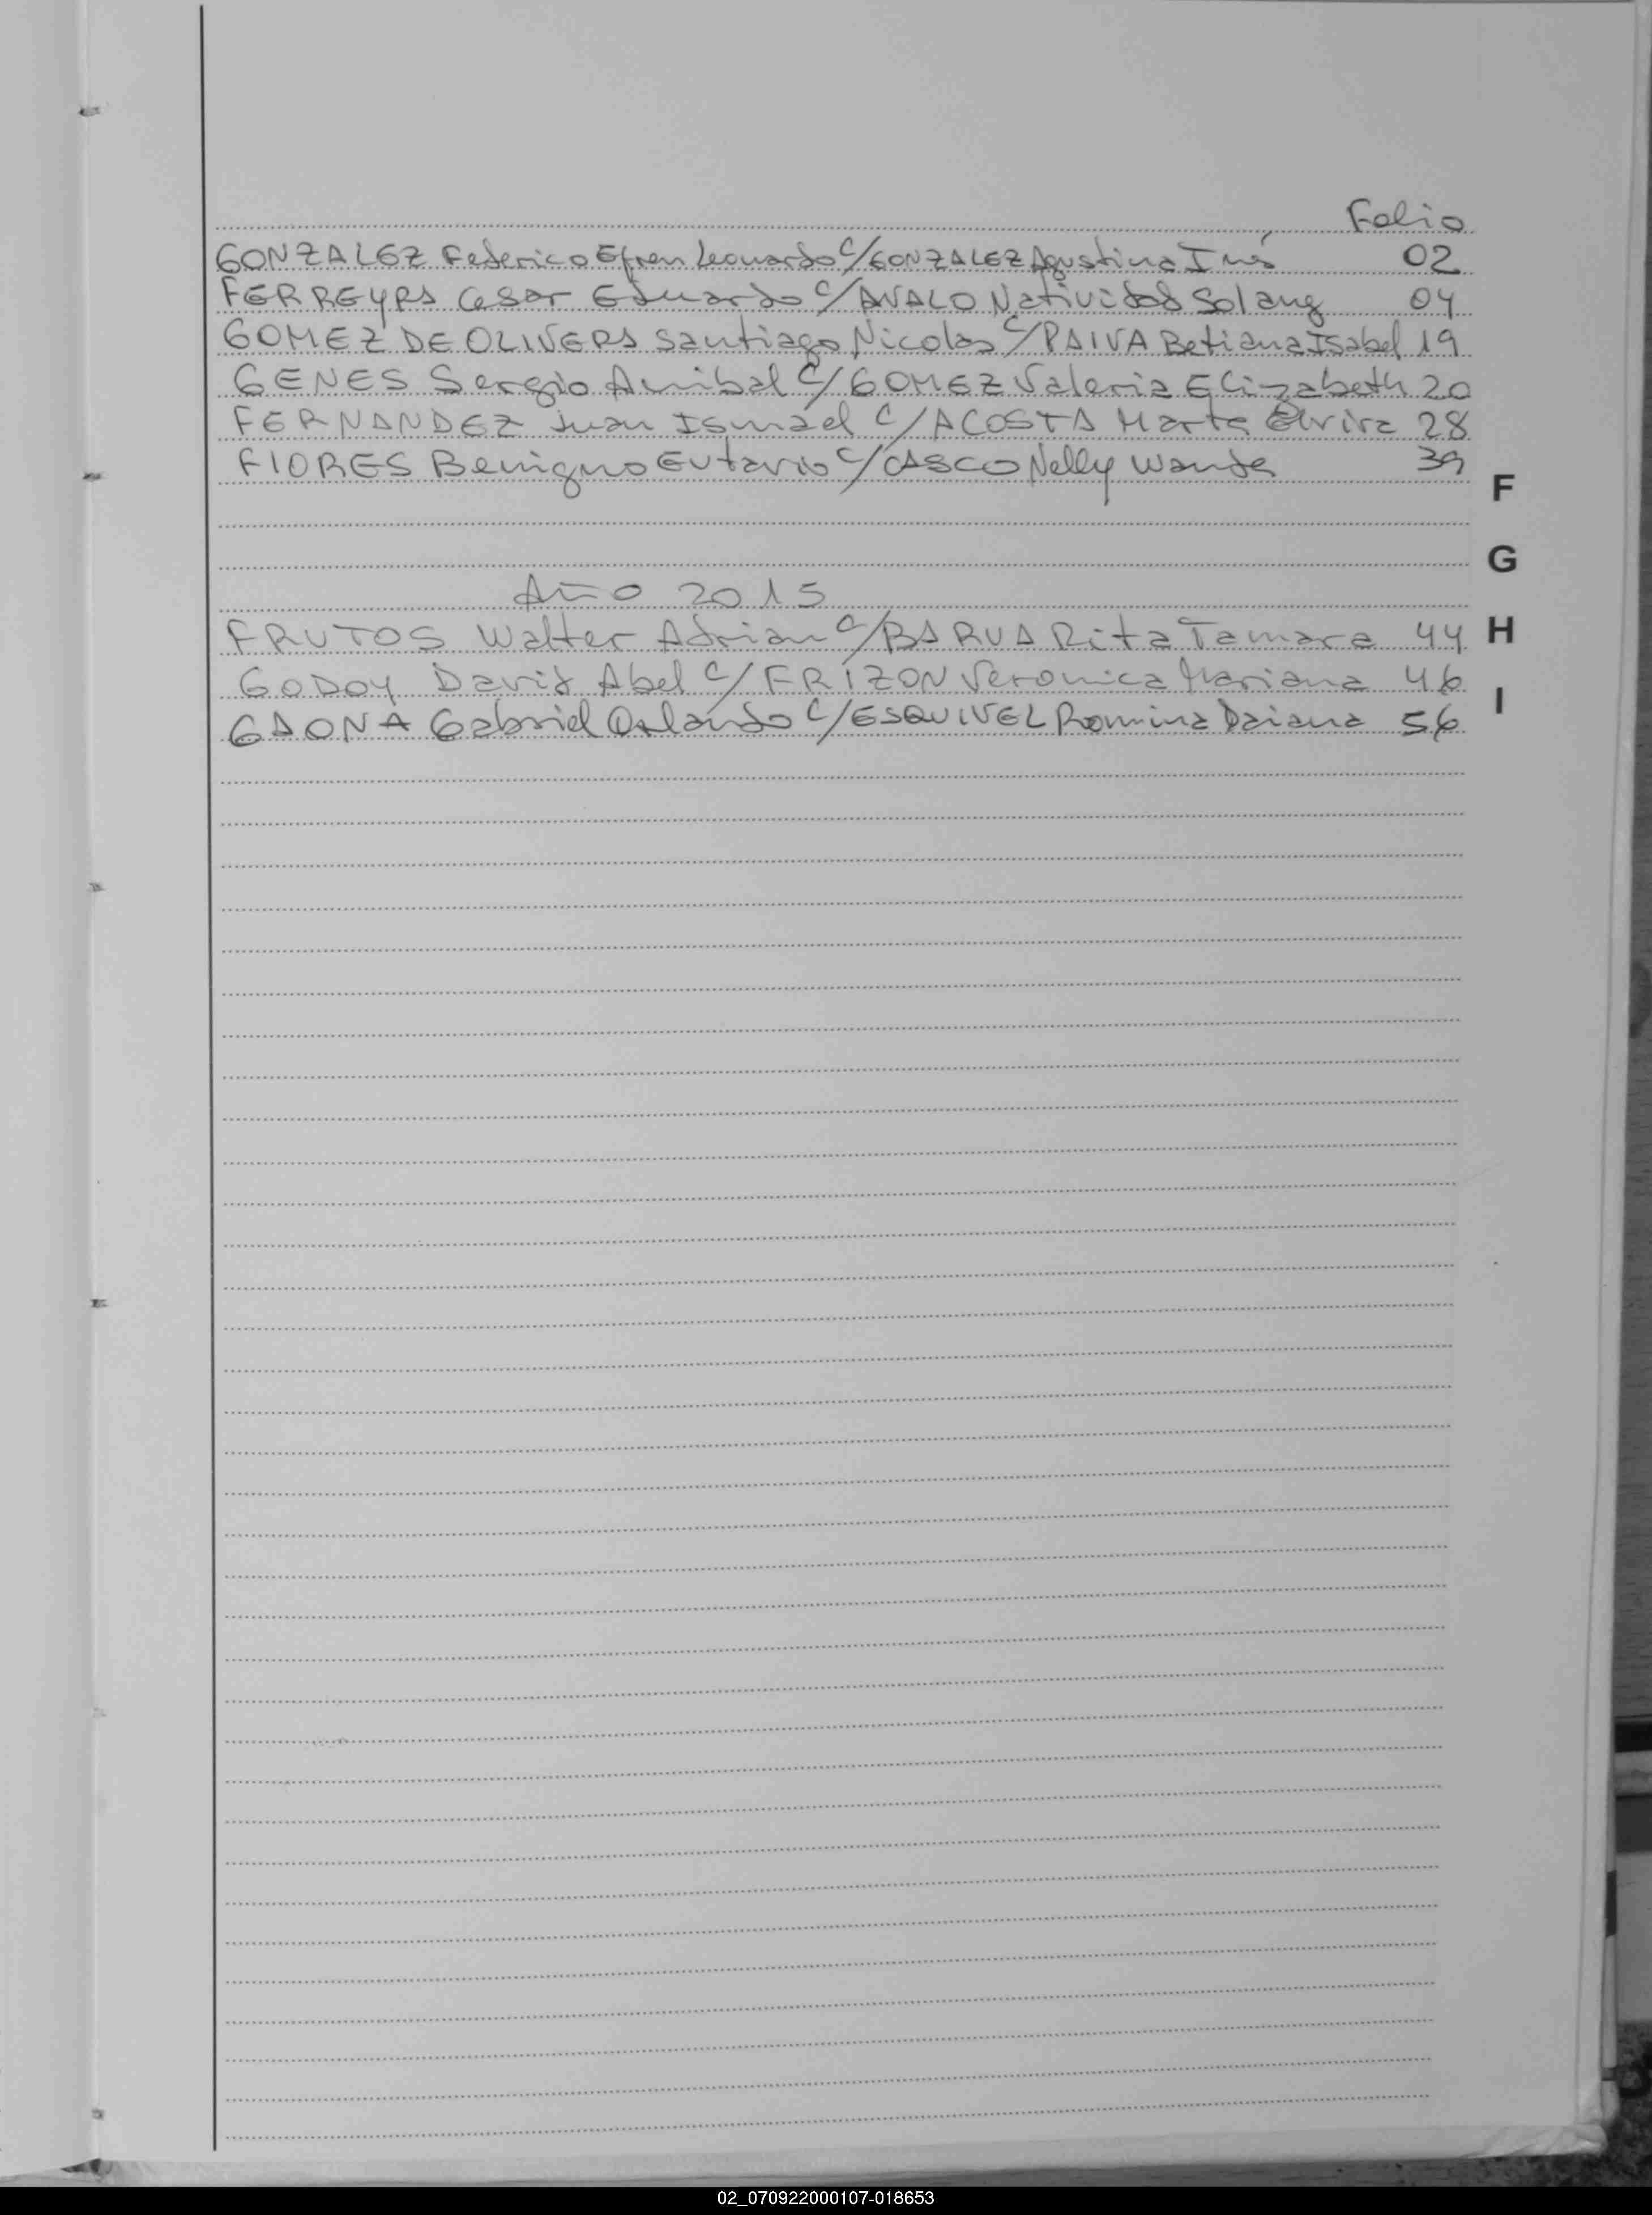 Folio
GONZALEZ Federico Efren Leonardo C/GONZALEZ Agustina Inés 02
FERREYRA Cesar Eduardo C/AVALO Natividad Solang 04
GOMEZ DE OLIVERA Santiago Nicolas C/PAIVA Betiana Isabel 19
GENES Sergio Anibal C/GOMEZ Valeria Elizabeth 20
FERNANDEZ Juan Ismael C/ACOSTA Marta Elvira 28
FLORES Benigno Eutavio C/CASCO Nelly Wanda 39
F
G
Año 2015
FRUTOS Walter Adrian C/BARUA Rita Tamara 44
H
GODOY David Abel C/FRIZON Veronica Mariana 46
I
GAONA Gabriel Orlando C/ESQUIVEL Romina Daiana 56
02_070922000107-018653